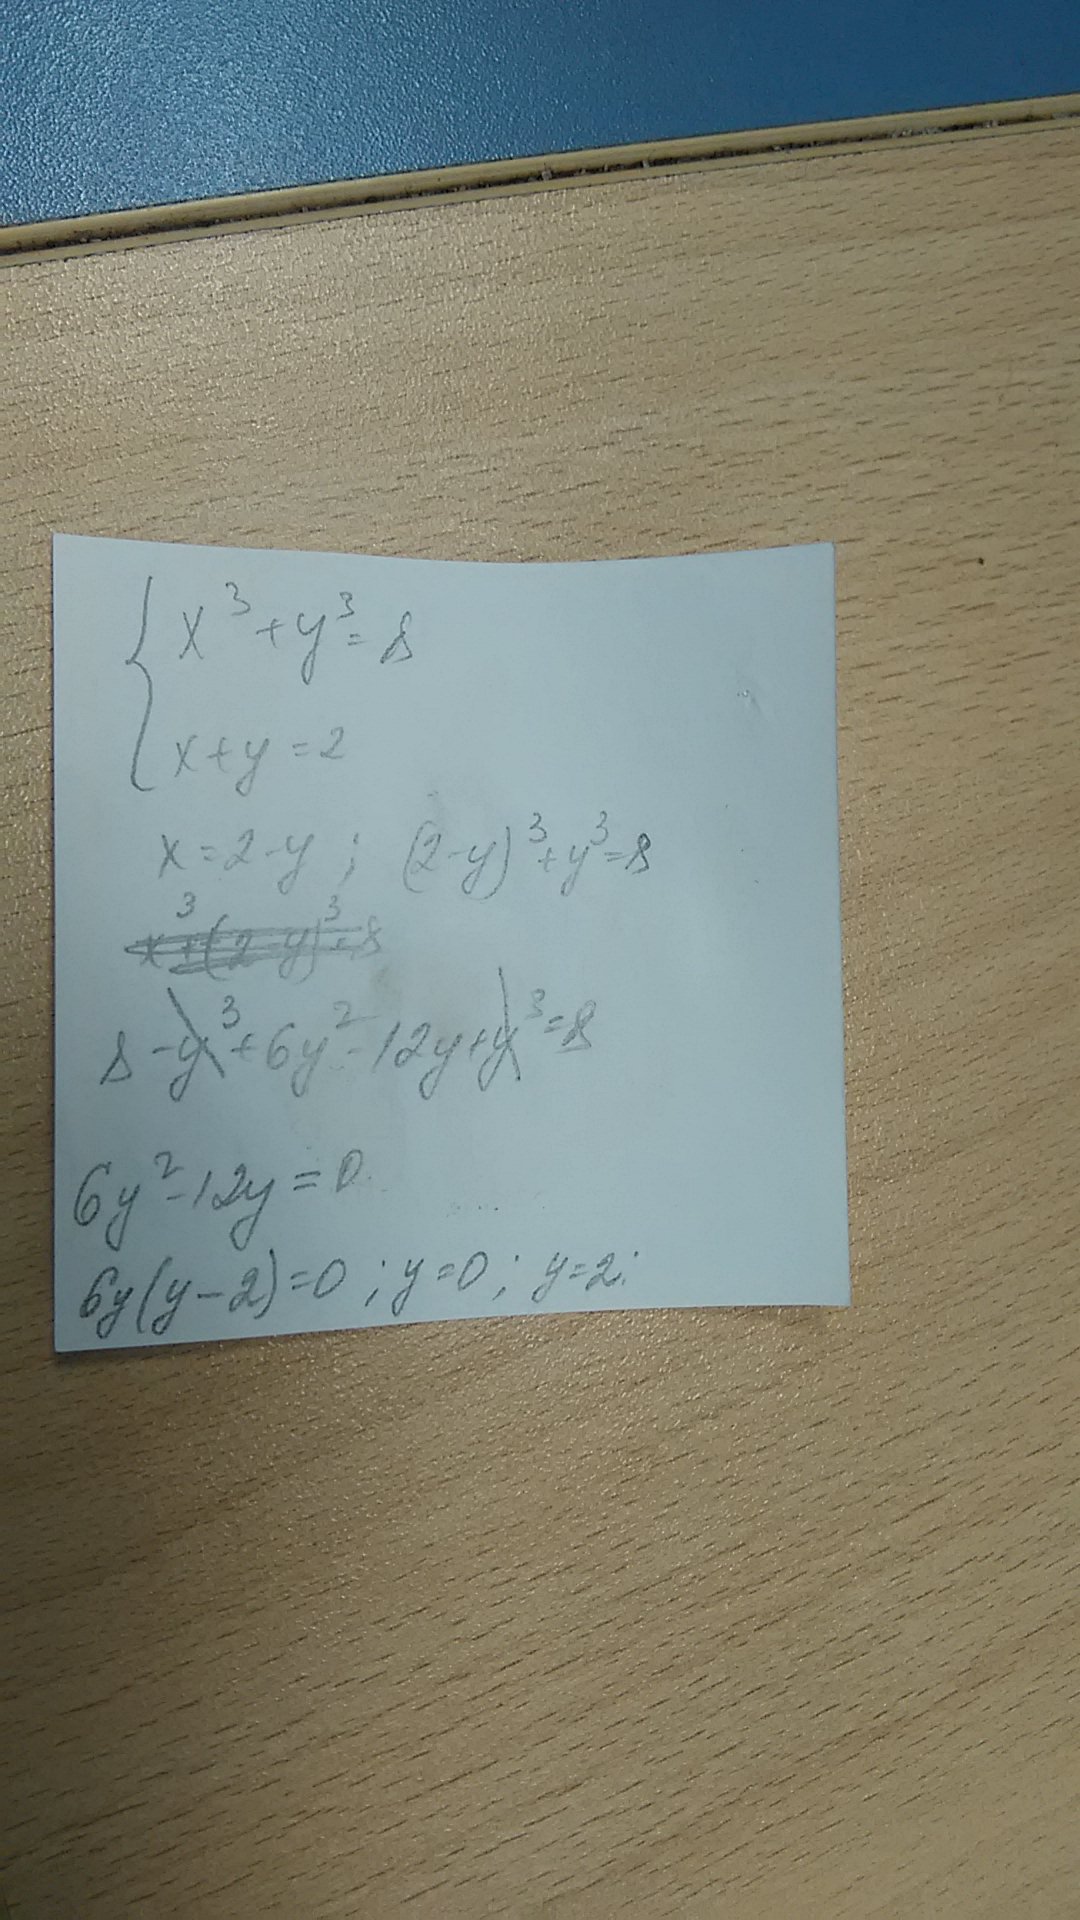 x³+y³=8
x+y=2
x=2-y; (2-y)³+y³=8
x³+(2-y)³=8
8-y³+6y²-12y+y³=8
6y²-12y=0
6y(y-2)=0; y=0; y=2;